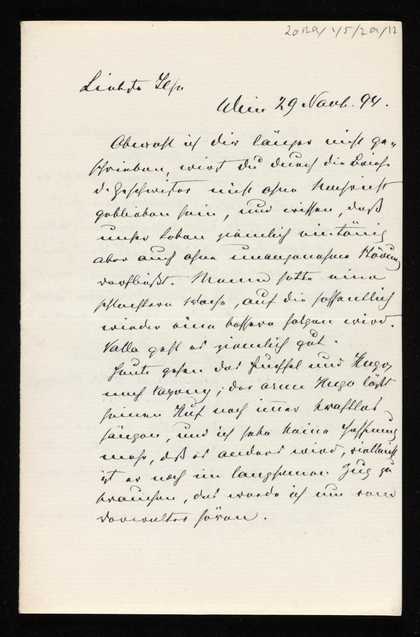 Liebste Ilse
Wien 29 Novb. 94.
Obwohl ich dir länger nicht ge-
schrieben, wirst du durch die Briefe
d. Geschwister nicht ohne Nachricht
geblieben sein, und wissen, daß
unser Leben ziemlich eintönig
aber auch ohne unangenehme Störung
verfließt. Mama hatte eine
schlechtere Woche, auf die hoffentlich
wieder eine bessere folgen wird.
geht es ziemlich gut.
Heute gehen das und Hugo
nach ; der arme Hugo läßt
seinen noch immer kraftlos
hängen, und ich habe keine Hoffnung
mehr, daß es anders wird, vielleicht
ist er noch im langsamen Zug zu
brauchen, das werde ich nun vom
Verwalter hören.